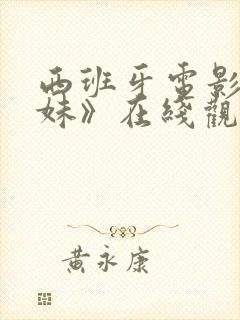 西班牙電影
妹》在綫觀
黃永康